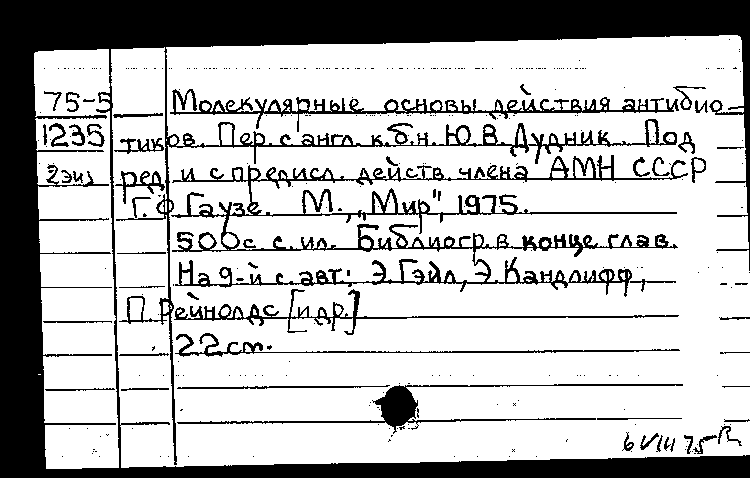 75-5 Молекулярные основы действия антибио-
1235 тиков. Пер. с англ. к.б.н. Ю.В. Дудник. Под
2экз ред. и с предисл. действ. члена АМН СССР
Г.Ф. Гаузе. М., „Мир", 1975.
500с. с ил. Библиогр. в конце глав.
На 9-й с. авт.: Э. Гэйл, Э. Кандлифф,
П. Рейнолдс [и др.]
22 см.
6 VIII 75